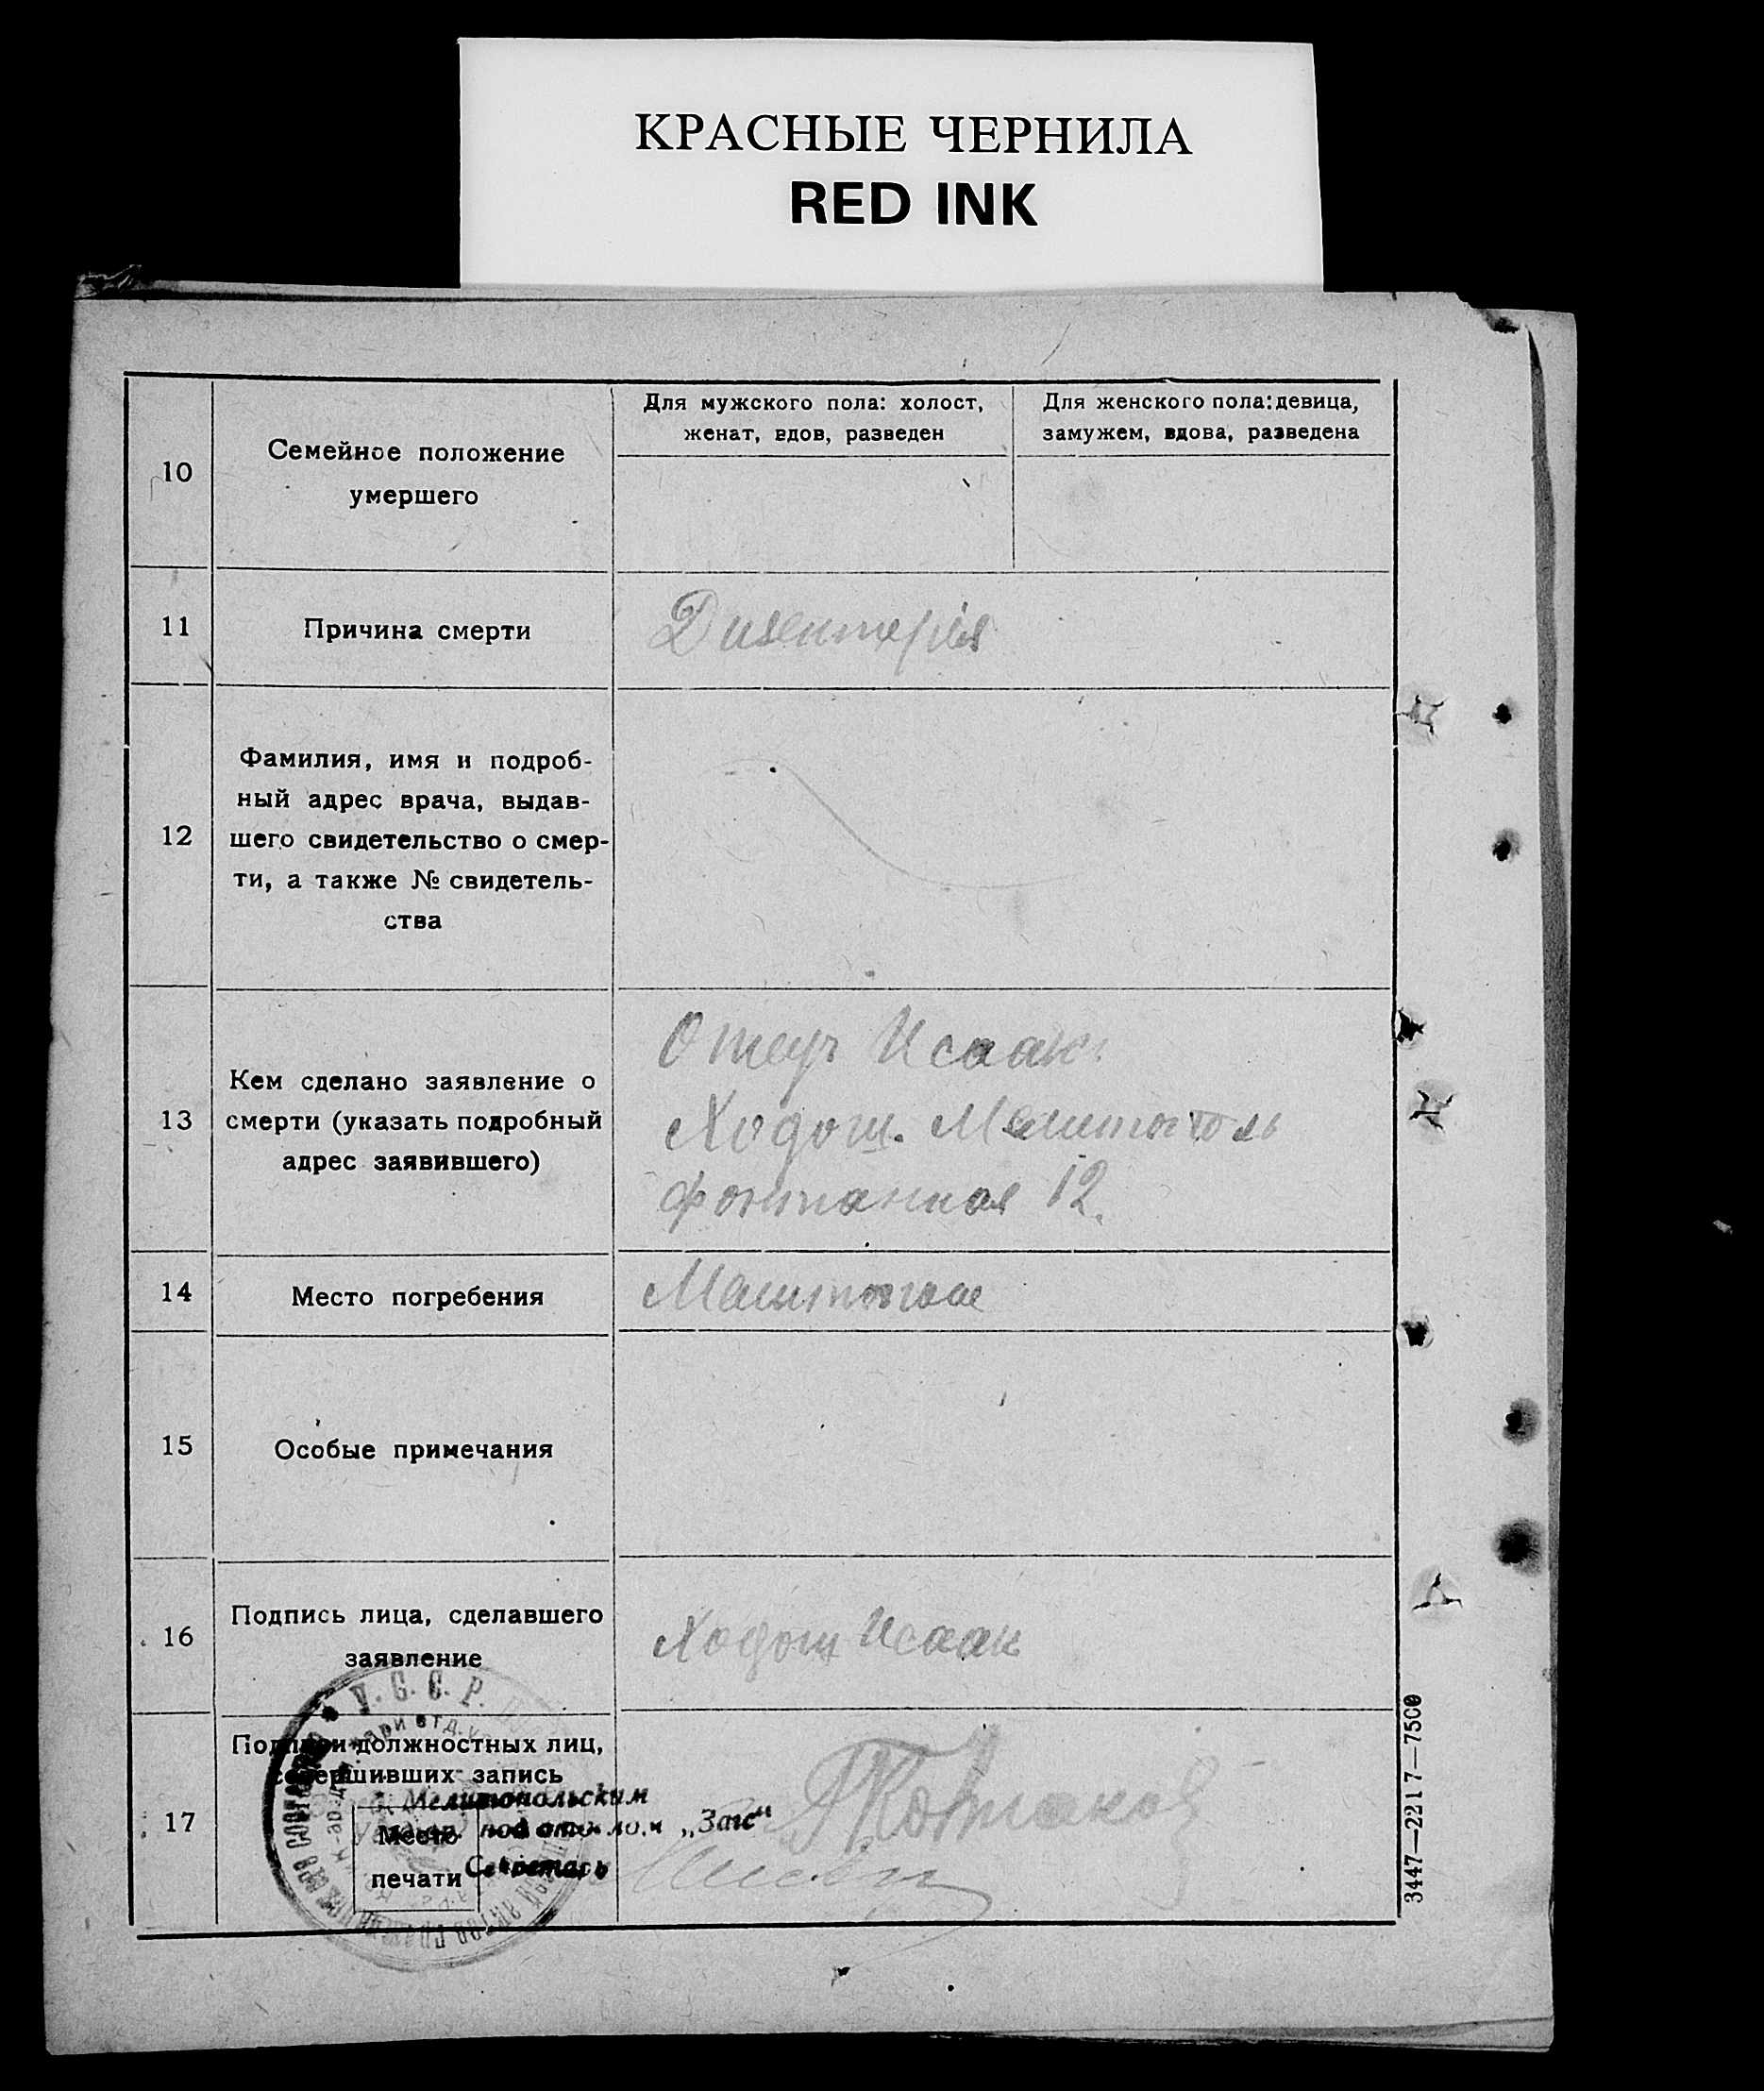 КРАСНЫЕ ЧЕРНИЛА
RED INK
Для мужского пола: холост,
женат, вдов, разведен
Для женского пола: девица,
замужем, вдова, разведена
10
Семейное положение
умершего
11
Причина смерти
Дизентерія
12
Фамилия, имя и подроб-
ный адрес врача, выдав-
шего свидетельство о смер-
ти, а также № свидетель-
ства
13
Кем сделано заявление о
смерти (указать подробный
адрес заявившего)
Отец Исаак
Ходош. Мелитополь
Фонтанная 12.
14
Место погребения
15
Особые примечания
16
Подпись лица, сделавшего
заявление
Ходош Исаак
17
Подписи должностных лиц,
совершивших запись
У. С. С. Р.
Мелитопольским
под отделом „Загс“
Секретарь
Место
печати
3447—2217—7500